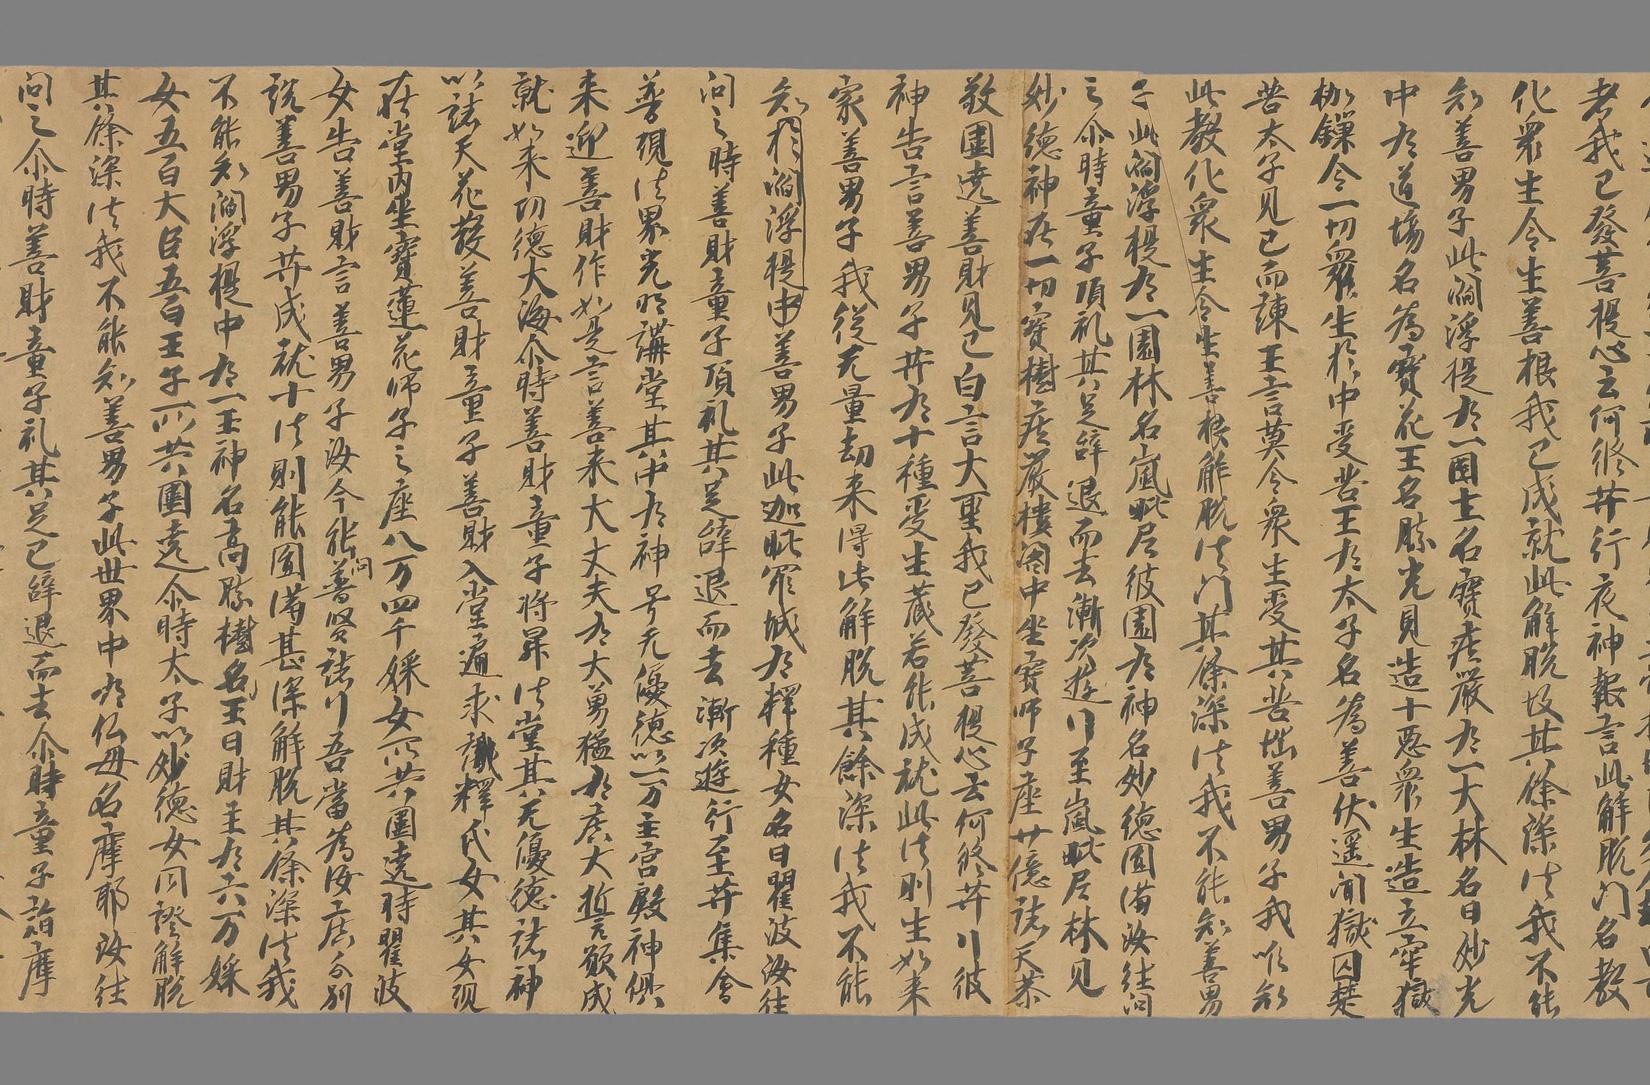 者我已發菩提心云何修井行夜神報言此解脫门名教
化衆生令生善根我已成就此解脫故其餘深法我不能
知善男子此閻浮提有一國主名寶庄嚴有一大林名曰妙光
中有道場名為寳花王名勝光見造十惡衆生造立牢獄
枷鏁令一切衆生於中受苦王有太子名為善伏遥闻獄囚楚
苦太子見已而諫王言莫令衆生受其苦惱善男子我唯知
此教化衆生令生善根解脫法门其餘深法我不能知善男
子此閻浮提有一園林名嵐毗尼彼園有神名妙德圓滿汝往问
之尒時童子頂礼其足辞退而去漸次遊行至嵐毗尼林見
妙德神在一切寳樹庄嚴樓閣中坐寳师子座廿億諸天恭
敬圍遶善財見已白言大聖我已發菩提心云何修井行彼
神告言善男子井有十種受生藏若能成就此法則生如来
家善男子我從无量劫来得此解脫其餘深法我不能
知於閻浮提中善男子此迦毗罗城有釋種女名曰瞿波汝往
问之時善財童子頂礼其足辞退而去漸次遊行至井集會
普現法界光明講堂其中有神号无優德以一万主宫殿神俱
来迎善財作如是言善来大丈夫有大勇猛有庄大誓願成
就如来功德大海尒時善財童子将昇法堂其无優德諸神
以諸天花散善財童子善財入堂遍求識釋氏女其女現
在堂内坐寳蓮花师子之座八万四千婇女所共圍遶時瞿波
女告善財言善男子汝今能问普賢諸行吾當為汝庄分別
説善男子井成就十法則能圓滿甚深解脫其餘深法我
不能知閻浮提中有一王神名高勝樹名王曰財主有六万婇
女五百大臣五百王子所共圍遶尒時太子以妙德女同證解脫
其餘深法我不能知善男子此世界中有仏母名摩耶汝往
问之尒時善財童子礼其足已辞退而去尒時童子詣摩